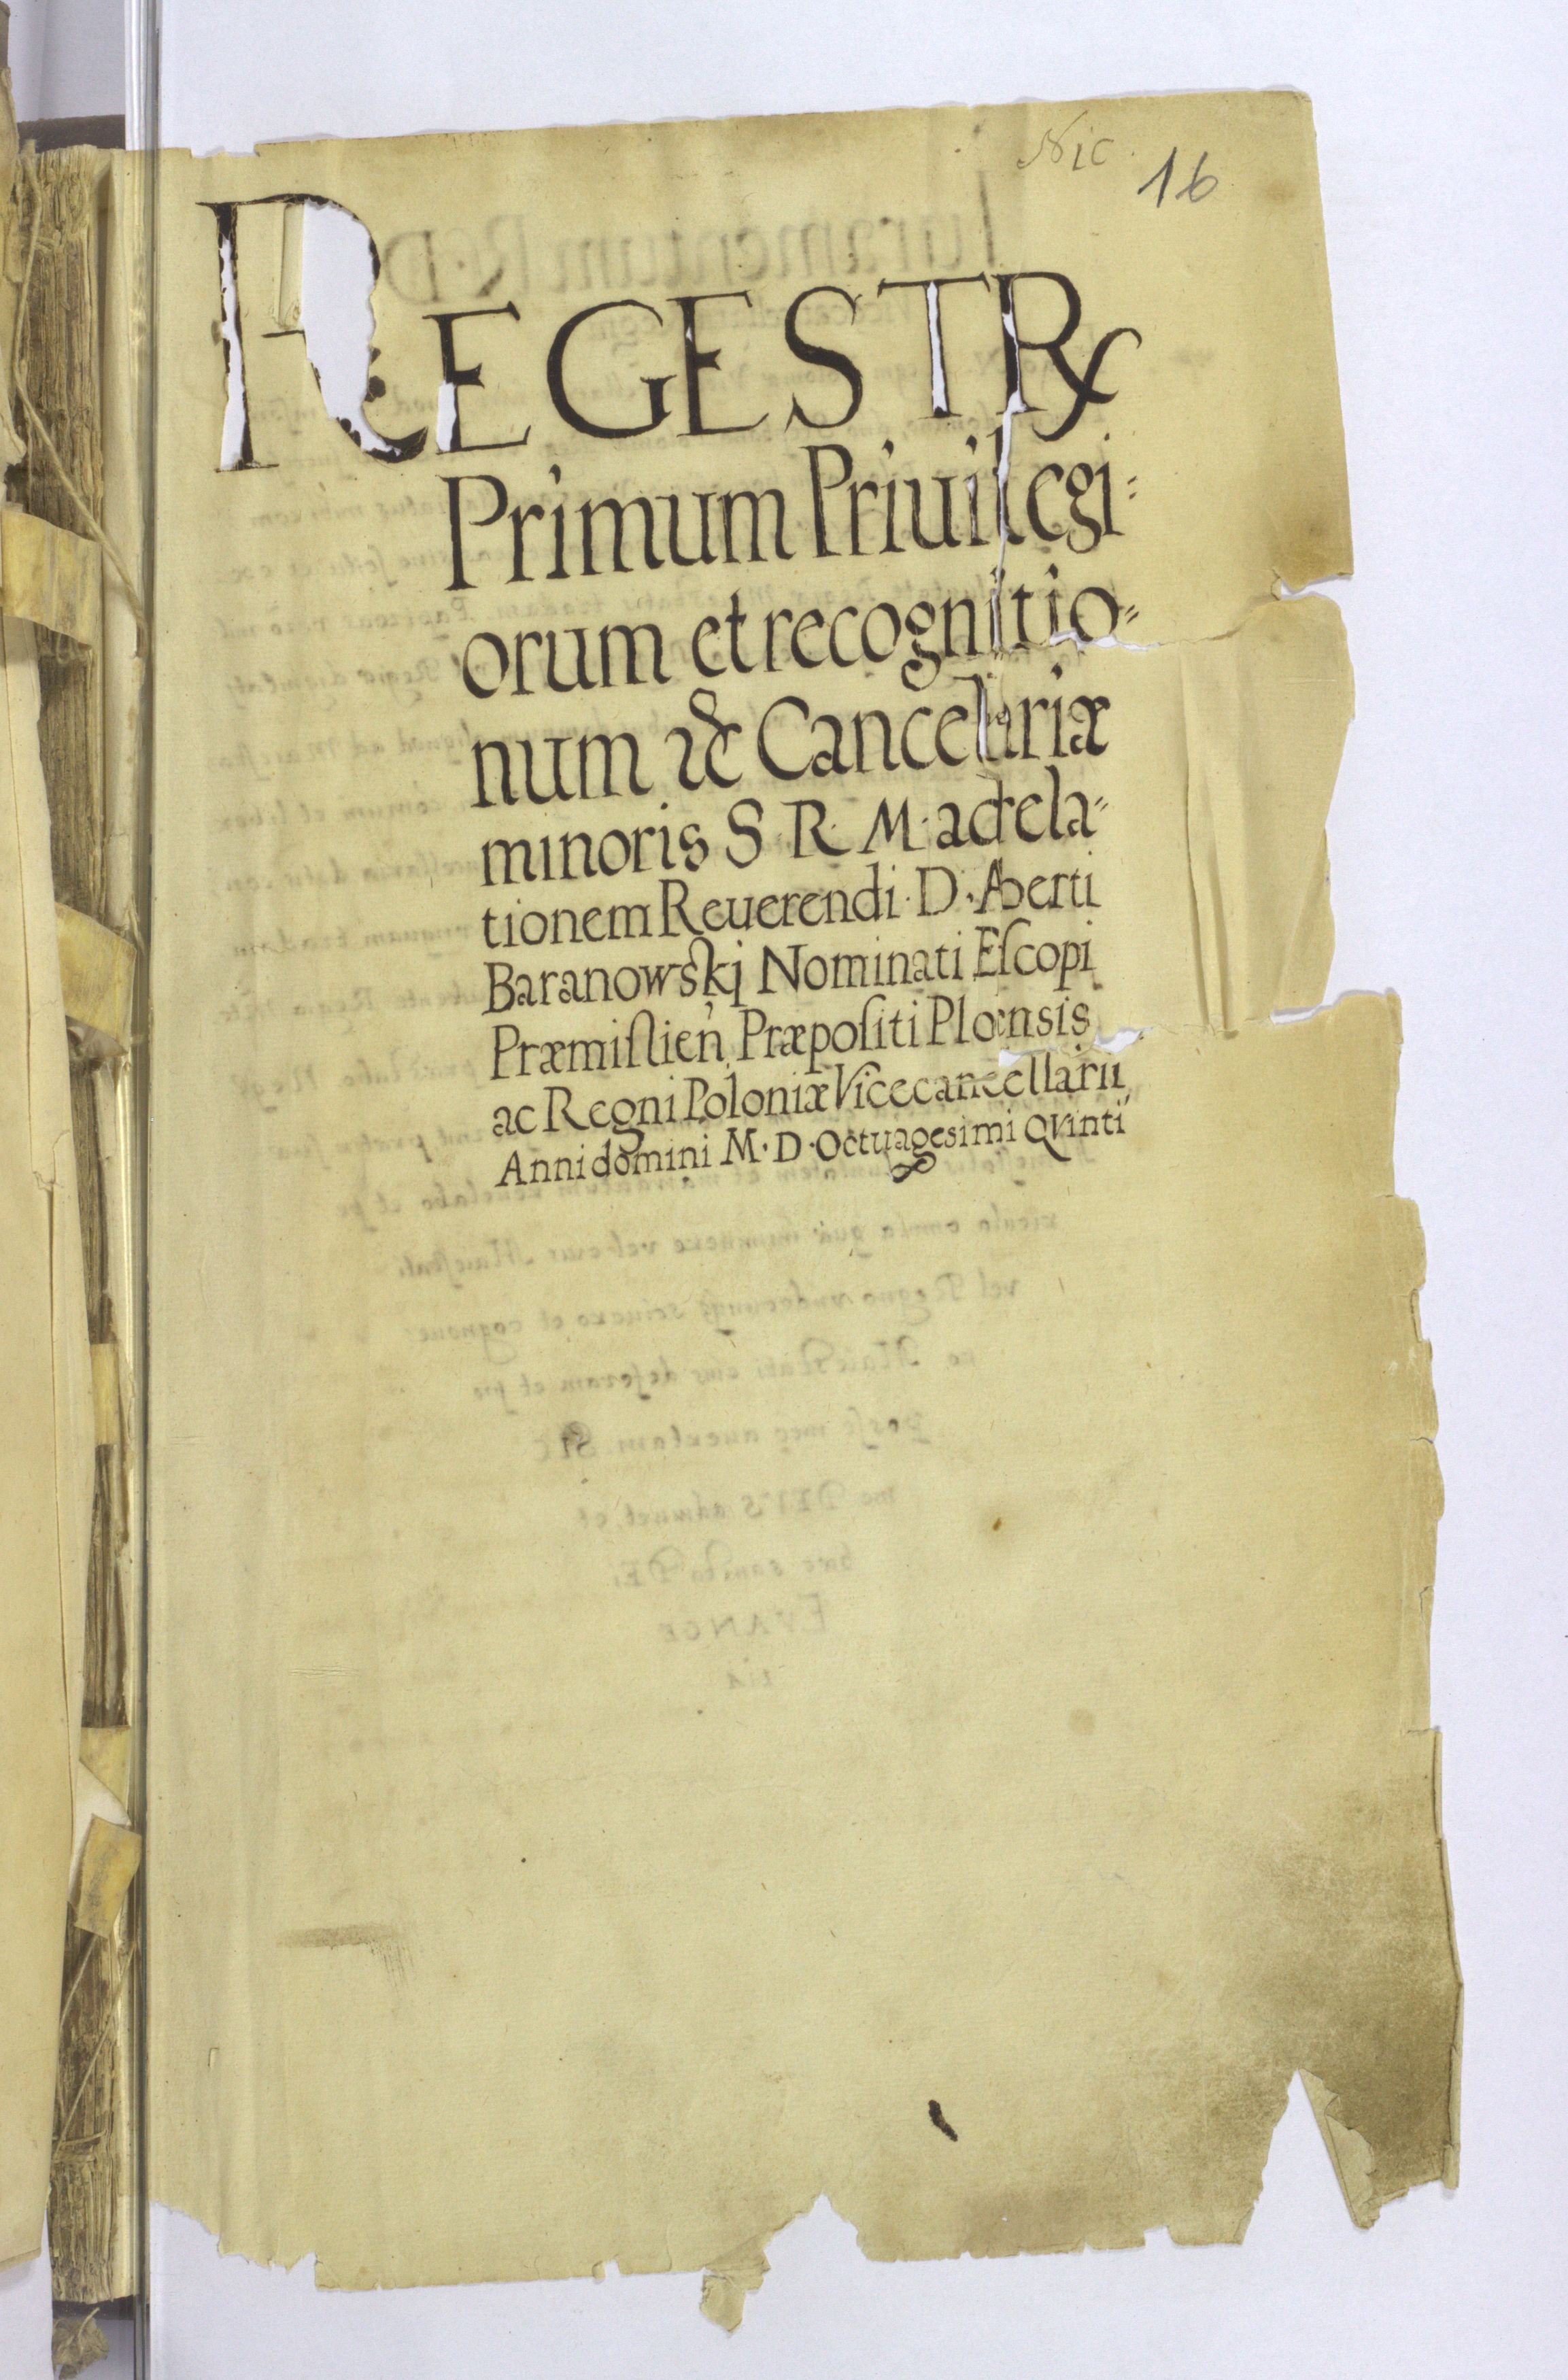 Nic. 16
REGESTR
Primum Priuilegi-
orum et recognitio-
num &c Cancelariæ
minoris S R. M. ad rela-
tionem Reuerendi. D. Aberti
Baranowskj Nominati Eſcopi
Præmiſlien̄ Præpoſiti Plocnsis
ac Regni Poloniæ Vicecancellarii
Anni domini M. D. Octuagesimi Qvinti